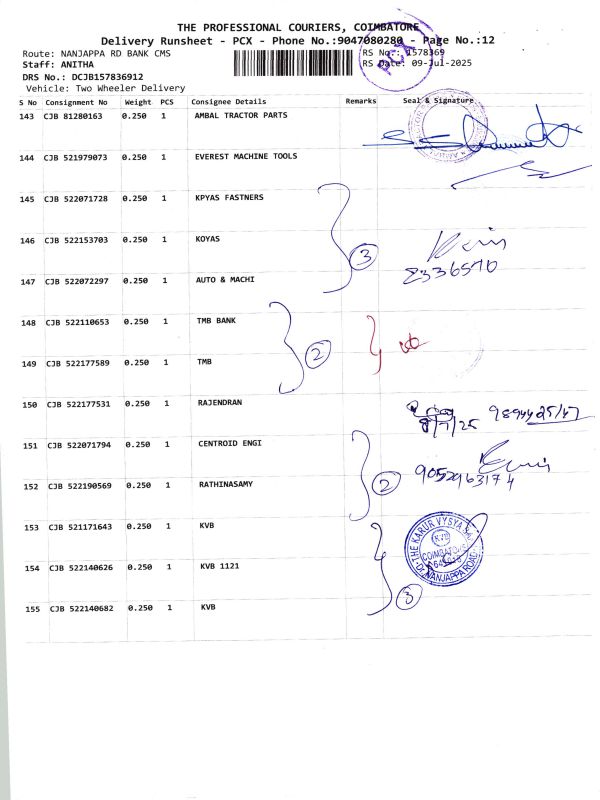 THE PROFESSIONAL COURIERS, COIMBATORE
Delivery Runsheet - PCX - Phone No.:9047080280 - Page No.:12
Route: NANJAPPA RD BANK CMS
RS No.: 1578369
Staff: ANITHA
RS Date: 09-Jul-2025
PCX
DRS No.: DCJB157836912
Vehicle: Two Wheeler Delivery
S No Consignment No Weight PCS Consignee Details Remarks Seal & Signature
143 CJB 81280163 0.250 1 AMBAL TRACTOR PARTS
144 CJB 521979073 0.250 1 EVEREST MACHINE TOOLS
145 CJB 522071728 0.250 1 KPYAS FASTNERS
146 CJB 522153703 0.250 1 KOYAS
3
147 CJB 522072297 0.250 1 AUTO & MACHI
148 CJB 522110653 0.250 1 TMB BANK
2
149 CJB 522177589 0.250 1 TMB
150 CJB 522177531 0.250 1 RAJENDRAN
151 CJB 522071794 0.250 1 CENTROID ENGI
2
9052963174
152 CJB 522190569 0.250 1 RATHINASAMY
153 CJB 521171643 0.250 1 KVB
THE KARUR VYSYA
KVB
COIMBATORE
Dr. NANJAPPA ROAD
154 CJB 522140626 0.250 1 KVB 1121
3
155 CJB 522140682 0.250 1 KVB